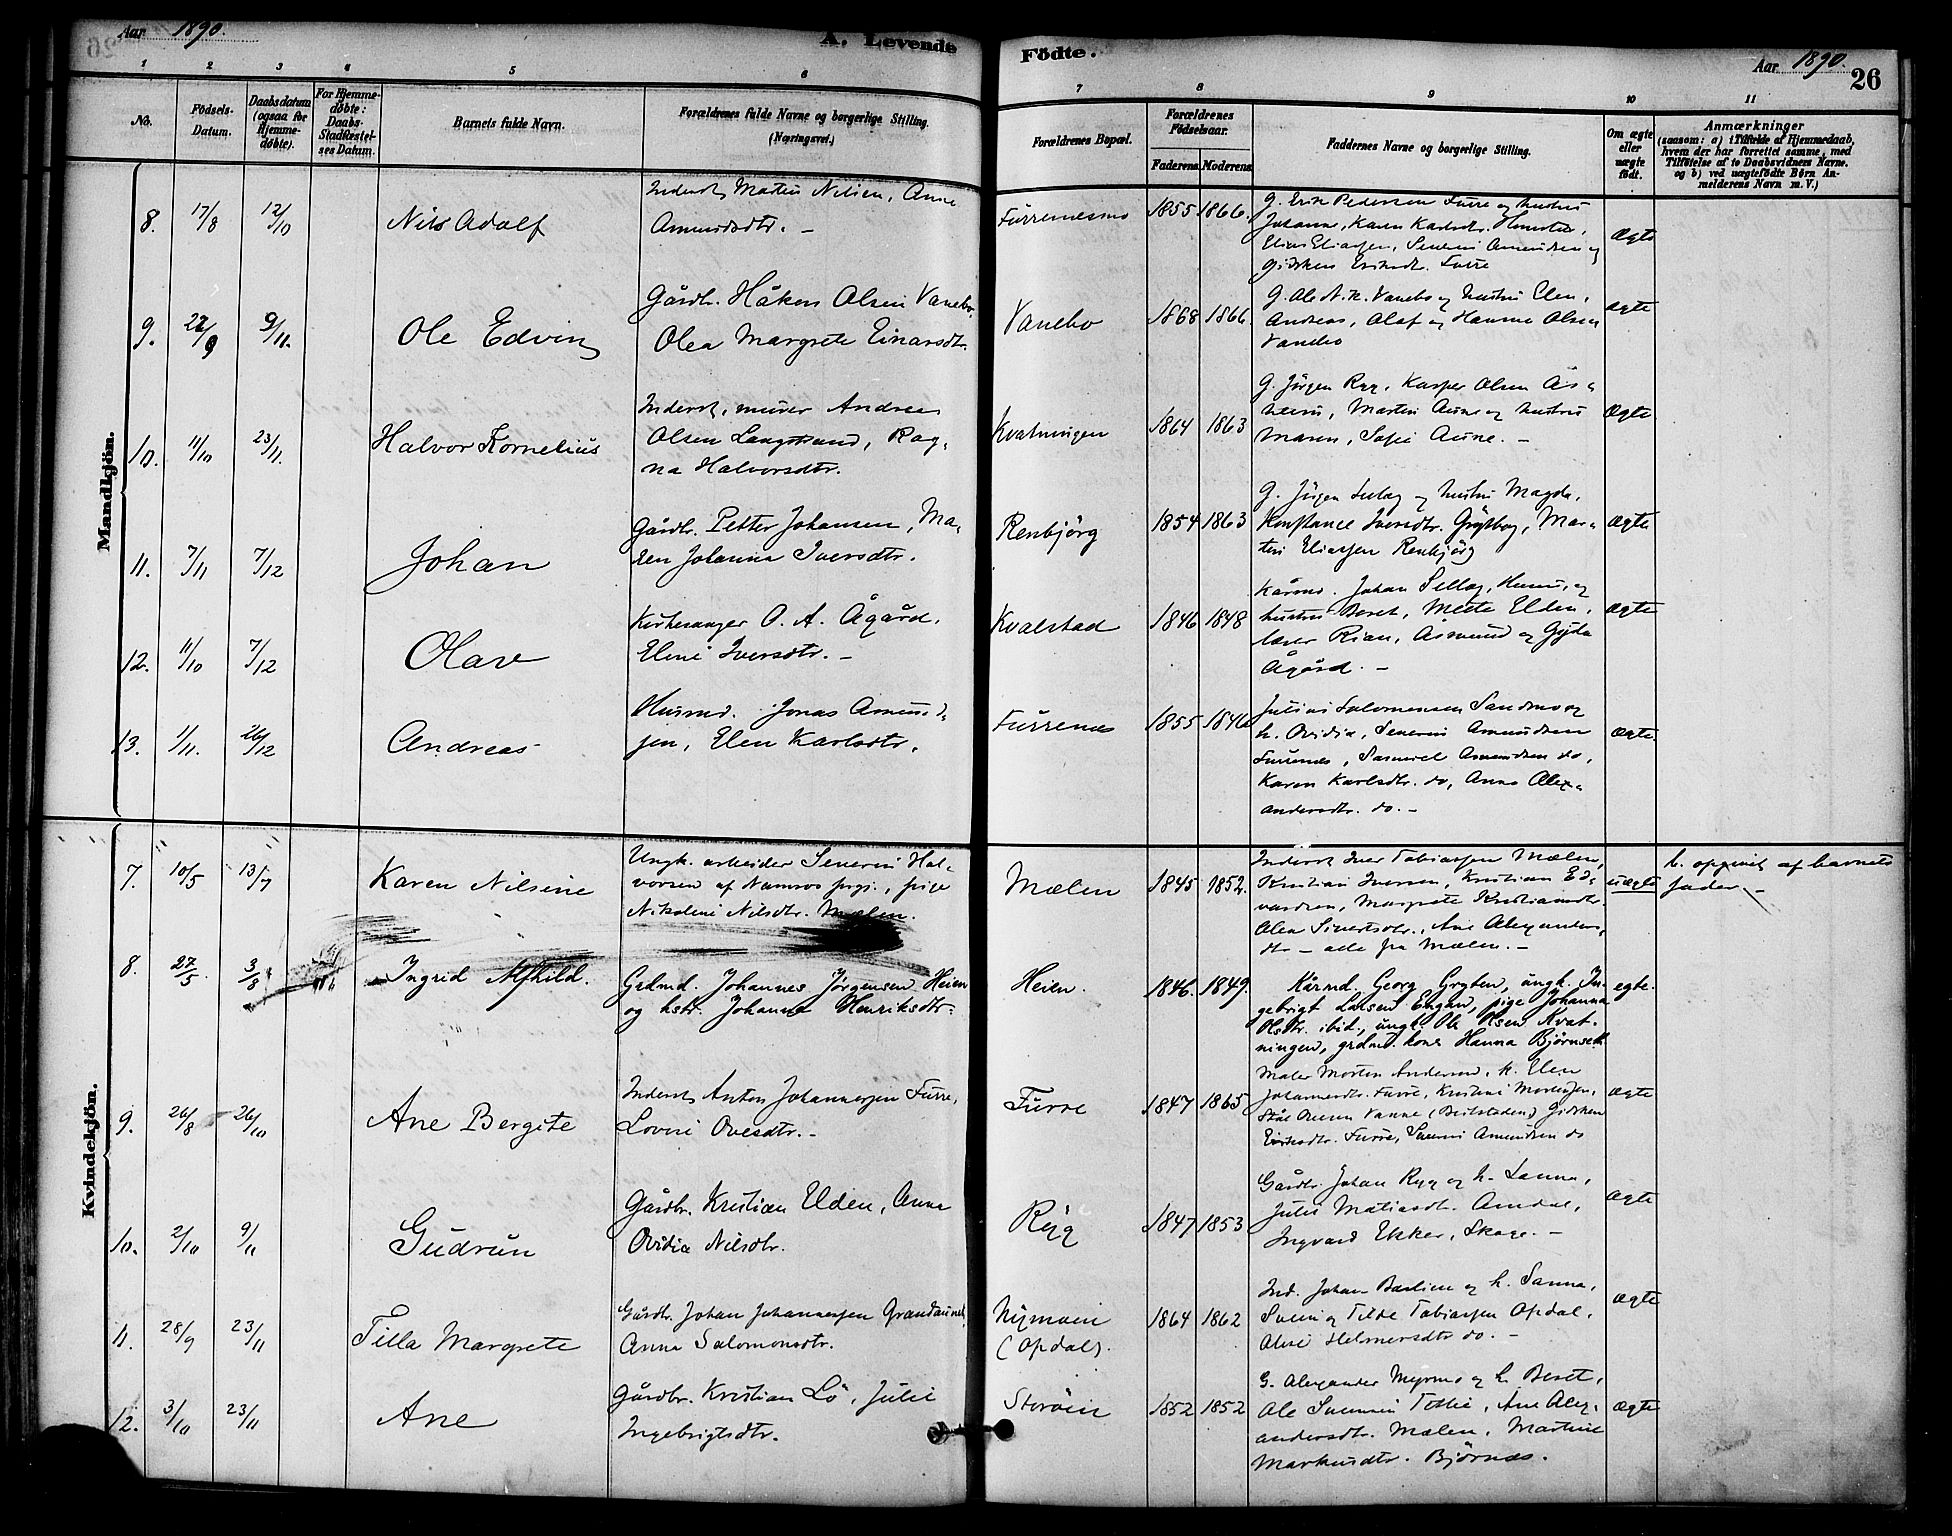 Aar 1890.
A. Levende
Födte.
Aar 1890.
26
1 2 3 4 5 6 7 8 9 10 11
No.
Födsels-
Datum.
Daabsdatum
(ogsaa for
Hjemme-
døbte).
For Hjemme-
døbte:
Daabs-
Stadfæstel-
ses Datum.
Barnets fulde Navn.
Forældrenes fulde Navne og borgerlige Stilling.
(Næringsvei.)
Forældrenes Bopæl.
Forældrenes
Födselsaar.
Faderens. Moderens.
Faddernes Navne og borgerlige Stilling.
Om ægte
eller
uægte
født.
Anmærkninger
(saasom: a) i Tilfælde af Hjemmedaab,
hvem der har forrettet samme, med
Tilføielse af to Daabsvidners Navne.
og b) ved uægtefödte Börn An-
melderens Navn m. V.)
Mandkjön.
8. 17/8 12/10 Nils Adolf
Inderst Martin Nilsen, Anne
Amundsdtr. –
Furrenesmo 1855 1866.
G. Erik Pedersen Furre og hustru
Johanna, Karen Karlsdtr.
Elias Eliassen, Severin Amundsen og
Gidsken Eriksdt. Furre
Ægte
9. 22/9 9/11. Ole Edvin
Gårdbr. Håkon Olsen Vanebo,
Olea Margrete Einarsdtr.
Vanebo 1868 1866.
G. Ole A. K. Vanebo og hustru Elen,
Andreas, Olaf og Hanna Olsen
Vanebo
ægte
10. 11/10 23/11. Halvor Kornelius
Inderst, murer Andreas
Olsen Langstrand, Rag-
na Halvorsdtr.
Kvatningen 1864 1863
G. Jörgen Ryg, Kasper Olsen Ås-
heim, Martin Aune og hustru
Maren, Sofie Aune. –
Ægte
11. 7/11 7/12 Johan
Gårdbr. Petter Johansen, Ma-
ren Johanna Iversdtr.
Renbjörg 1854 1863
G. Jörgen Sellæg og hustru Magda,
Konstance Iversdtr. Grøtbog, Mar-
tin Eliassen Renbjørg
Ægte
12. 11/10 7/12 Olav
Kirkesanger O. A. Ågård,
Eline Iversdtr. –
Kvalstad 1846 1848
Kårmd. Johan Sellæg, Hunn, og
hustru Beret, Mette Elden,
lærer Rian, Åsmund og Gyda
Ågård. –
ægte
13. 1/11. 26/12 Andreas
Husmd. Jonas Amund-
sen, Elen Karlsdtr.
Furrenes 1855 1846
Julius Salomonsen Sandmo og
h. Ovidia, Severin Amundsen
Furrenes, Samuel Amundsen do,
Karen Karlsdtr. do, Anna Alex-
andersdtr. do. –
Ægte.
Kvindekjön.
7. 10/5 13/7 Karen Nilsine
Ungk. arbeider Severin Hal-
vorsen af Namsos prgj., pige
Nikoline Nilsdtr. Mælen.
Mælen 1845 1852.
Inderst Iver Tobiassen Mælen,
Kristian Iversen, Kristian Ed-
vardsen, Margrete Kristiansdtr.
Olea Sivertsdtr., Ane Alexanders-
dtr – alle fra Mælen. –
uægte
b. opgivet af barnets
fader. –
8. 27/5. 3/8 Ingrid Alfhild.
Grdmd. Johannes Jørgensen Heien
og hstr. Johanna Henriksdtr.
Heien. 1846. 1849.
Kårmd. Georg Gryten, ungk. In-
gebrigt Larsen Engan, pige Johanna
Olsdtr. ibid., ungk. Ole Olsen Kvat-
ningen, grdmd. kone Hanna Bjørnseth
egte.
9. 26/8 26/10 Ane Bergite
Inderst Anton Johannessen Furre,
Lovise Ovesdtr. –
Furre 1847 1865
Maler Morten Anderson, h. Elen
Johannesdtr. Furre, Kristine Mortensen,
Ståle Vanne (Beitstaden) Gidsken
Eriksdtr. Furre, Severin Amundsen do
ægte
10. 2/10 9/11 Gudrun
Gårdbr. Kristian Elden, Anna
Ovidia Nilsdtr.
Ryg 1847 1853
Gårdbr. Johan Ryg og h. Sanna,
Julie Matiasdt. Amdal,
Ingvard Ekker, Skage. –
ægte
11. 28/9 23/11 Tilla Margrete
Gårdbr. Johan Johannessen Grandaunet,
Anna Salomonsdtr.
Nymoen
(Opdal). 1864 1862
Ind. Johan Barlien og h. Sanna,
Svein og Tilde Tobiassen Opdal,
Alise Helmersdtr do. –
ægte
12. 3/10 23/11 Ane
Gårdbr. Kristian Lö, Julie
Ingebrigtsdtr.
Storöen 1852 1852
G. Alexander Myrmo og h. Beret,
Ole Tetlie, Ane Alex-
andersdtr. Mælen, Martine
Markusdtr. Björnes.
ægte